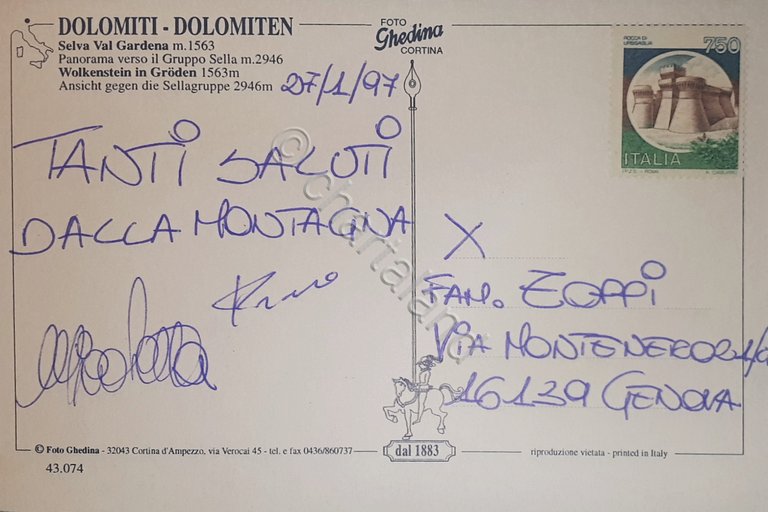 DOLOMITI - DOLOMITEN
Selva Val Gardena m.1563
Panorama verso il Gruppo Sella m.2946
Wolkenstein in Gröden 1563m
Ansicht gegen die Sellagruppe 2946m
27/1/97
FOTO
Ghedina
CORTINA
ROCCA DI
URBISAGLIA
750
ITALIA
I.P.Z.S. - ROMA
TANTI SALUTI
DALLA MONTAGNA
X
FAM. ZOPPI
VIA MONTENERO
16139 GENOVA
© chartaland
© Foto Ghedina - 32043 Cortina d'Ampezzo, via Verocai 45 - tel. e fax 0436/860737
dal 1883
riproduzione vietata - printed in Italy
43.074